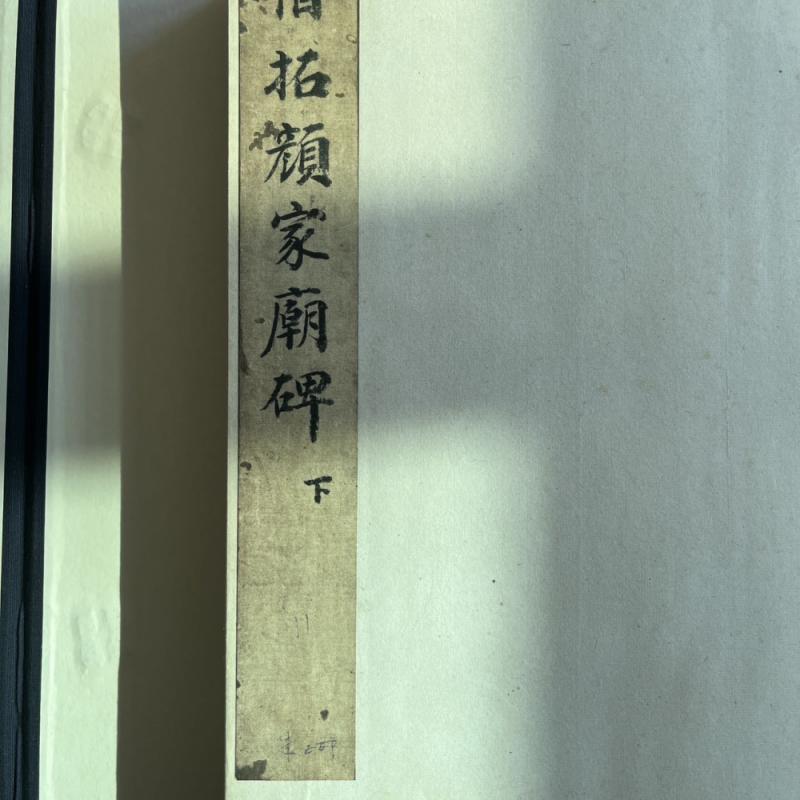 拓顏家廟碑
下